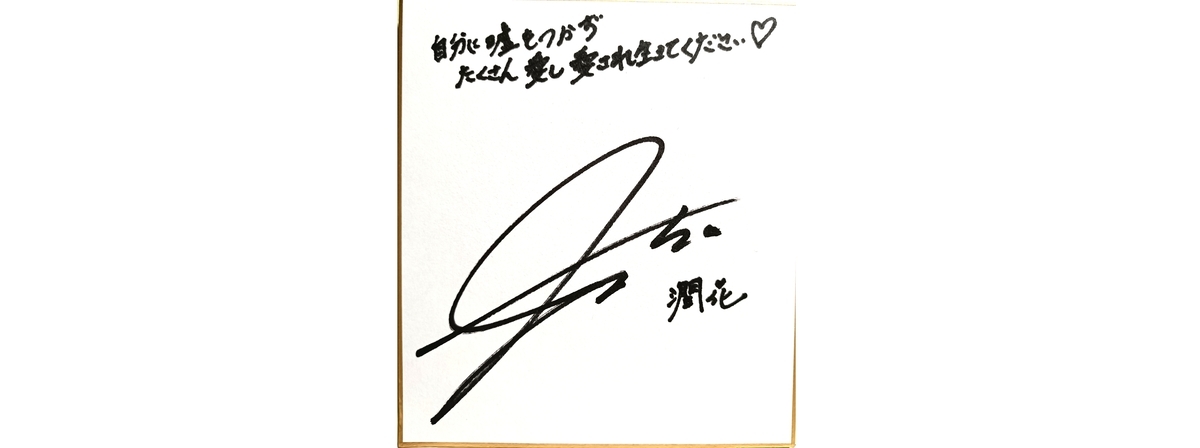 自分に嘘をつかず
たくさん愛し愛され生きてください♡
潤花